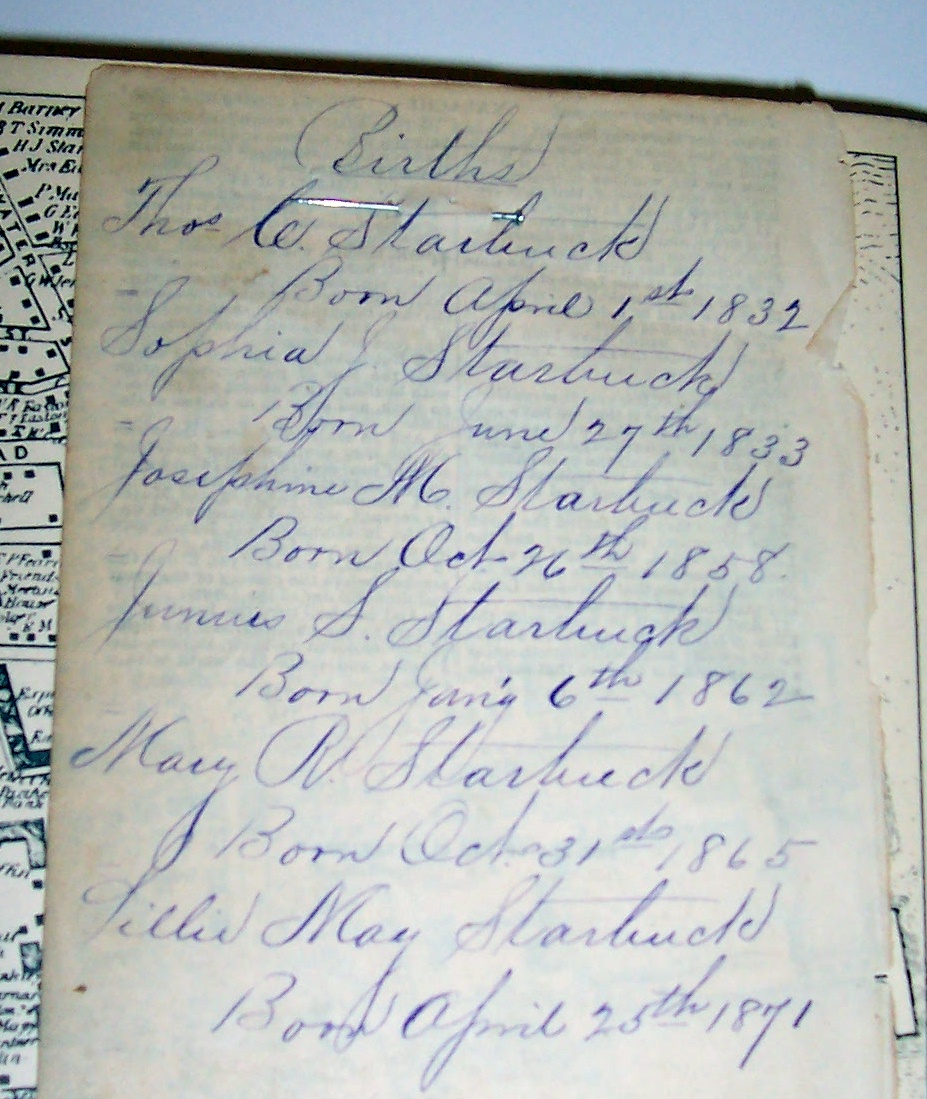 Births
Thos C. Starbuck
Born April 1st 1832
Sophia J. Starbuck
Born June 27th 1833
Josephine M. Starbuck
Born Oct 26th 1858.
Junius S. Starbuck
Born Jan'y 6th 1862
Mary R. Starbuck
Born Oct 31st 1865
Lillie May Starbuck
Born April 25th 1871
Barney
T Simm
H J Star
Mrs
WATER
ST
AD
Friends